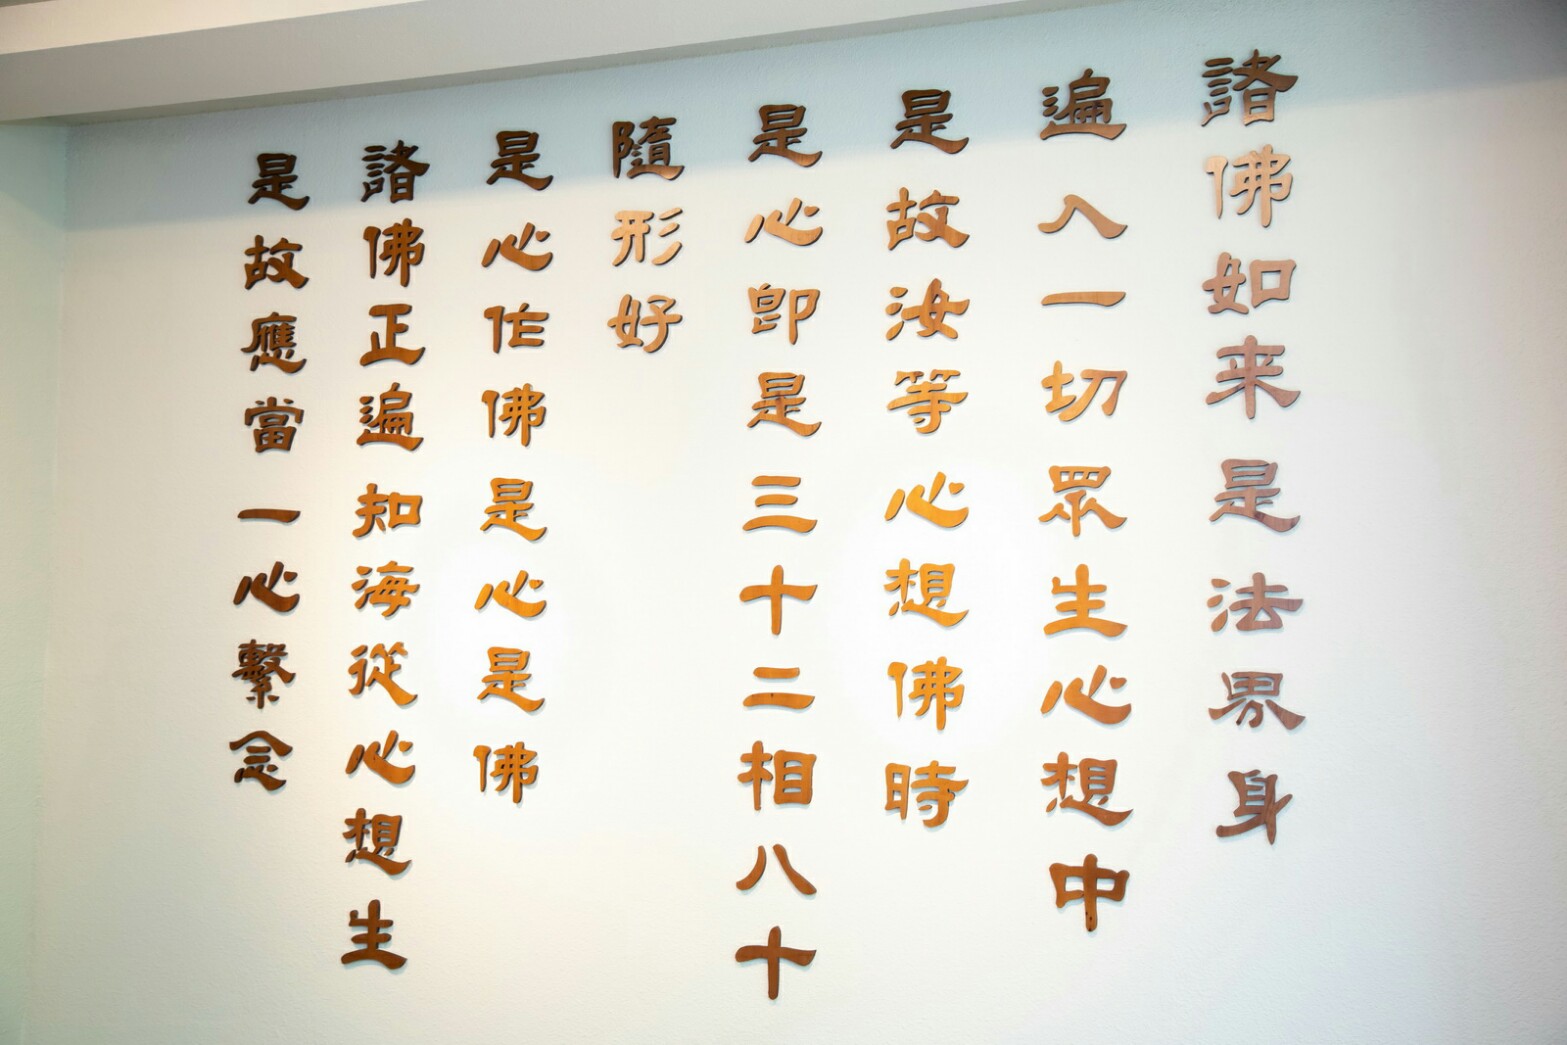 諸佛如来是法界身
遍入一切眾生心想中
是故汝等心想佛時
是心即是三十二相八十
隨形好
是心作佛是心是佛
諸佛正遍知海從心想生
是故應當一心繫念